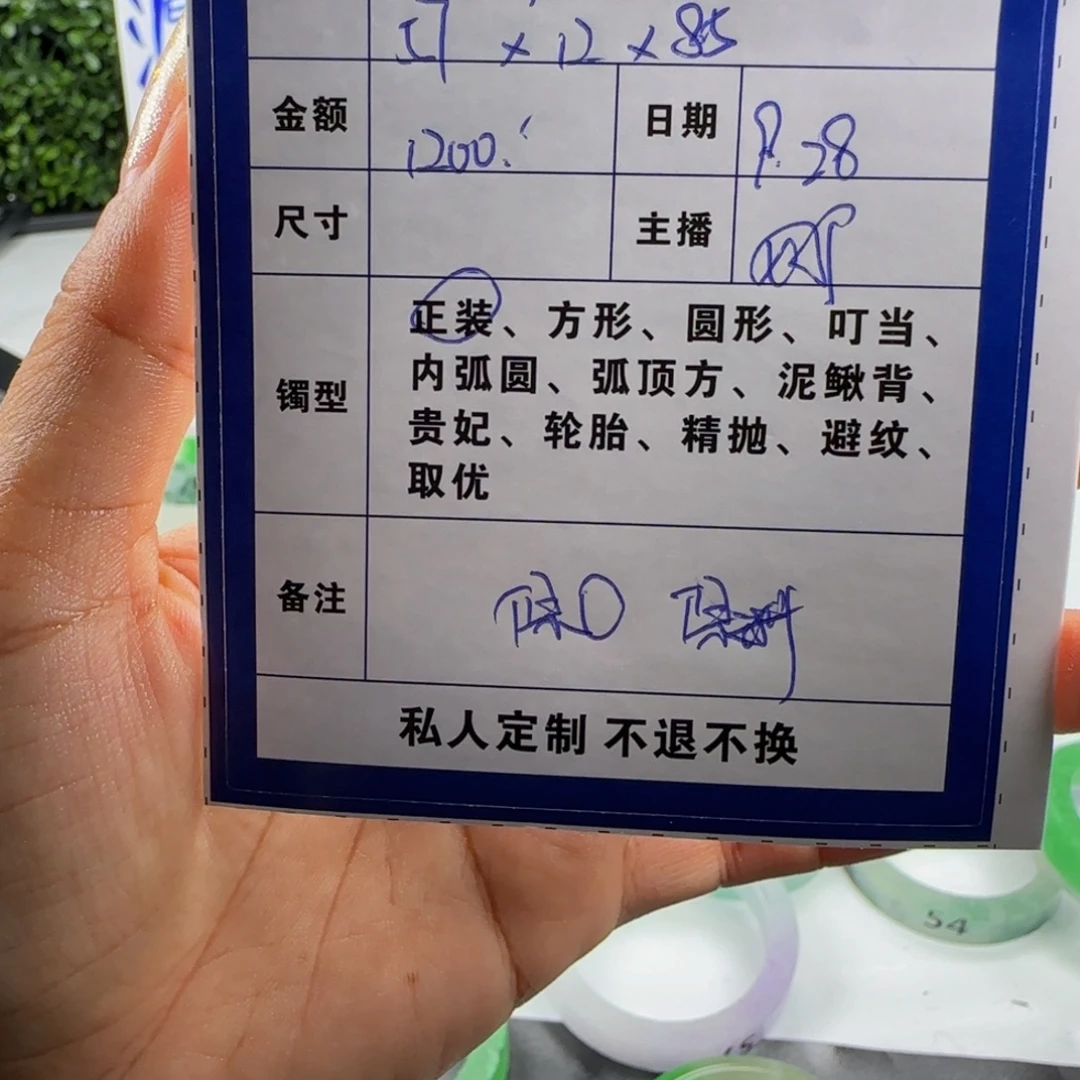 57 × 12 × 85
金额 1200. 日期 8.28
尺寸 主播
正装、方形、圆形、叮当、
内弧圆、弧顶方、泥鳅背、
镯型
贵妃、轮胎、精抛、避纹、
取优
备注 保口 保料
私人定制 不退不换
54